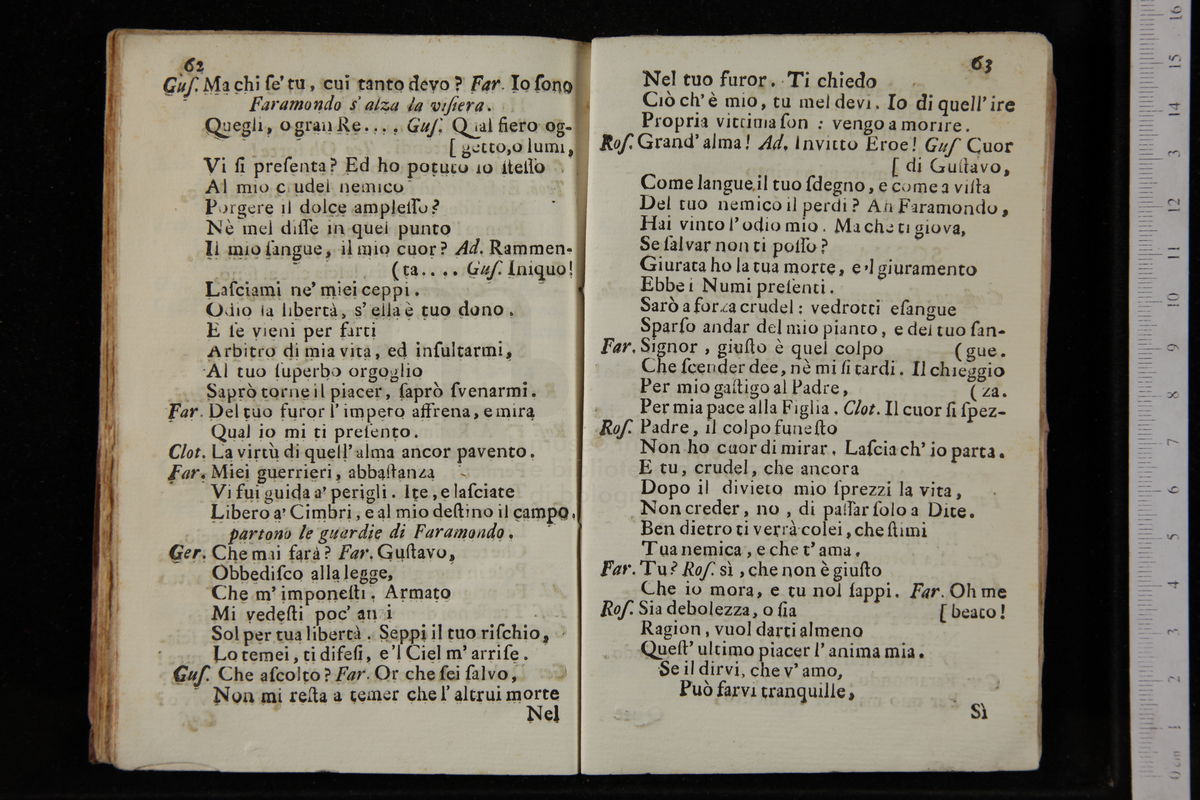 62
Guſ. Ma chi ſe' tu, cui tanto devo? Far. Io ſono
Faramondo s' alza la viſiera.
Quegli, o gran Re.... Guſ. Qual fiero og-
[getto, o lumi,
Vi ſi preſenta? Ed ho potuto io ſteſſo
Al mio crudel nemico
Porgere il dolce ampleſſo?
Nè mel diſſe in quel punto
Il mio ſangue, il mio cuor? Ad. Rammen-
(ta.... Guſ. Iniquo!
Laſciami ne' miei ceppi.
Odio la libertà, s' ella è tuo dono.
E ſe vieni per farti
Arbitro di mia vita, ed inſultarmi,
Al tuo ſuperbo orgoglio
Saprò torne il piacer, ſaprò ſvenarmi.
Far. Del tuo furor l' impeto affrena, e mira
Qual io mi ti preſento.
Clot. La virtù di quell' alma ancor pavento.
Far. Miei guerrieri, abbaſtanza
Vi fui guida a' perigli. Ite, e laſciate
Libero a' Cimbri, e al mio deſtino il campo.
partono le guardie di Faramondo.
Ger. Che mai farà? Far. Guſtavo,
Obbediſco alla legge,
Che m' imponeſti. Armato
Mi vedeſti poc' an i
Sol per tua libertà. Seppi il tuo riſchio,
Lo temei, ti difeſi, e 'l Ciel m' arriſe.
Guſ. Che aſcolto? Far. Or che ſei ſalvo,
Non mi reſta a temer che l' altrui morte
Nel
63
Nel tuo furor. Ti chiedo
Ciò ch' è mio, tu mel devi. Io di quell' ire
Propria vittima ſon : vengo a morire.
Roſ. Grand' alma! Ad. Invitto Eroe! Guſ Cuor
[di Guſtavo,
Come langue il tuo ſdegno, e come a viſta
Del tuo nemico il perdi? Ah Faramondo,
Hai vinto l' odio mio. Ma che ti giova,
Se ſalvar non ti poſſo?
Giurata ho la tua morte, e 'l giuramento
Ebbe i Numi preſenti.
Sarò a forza crudel : vedrotti eſangue
Sparſo andar del mio pianto, e del tuo ſan-
Far. Signor, giuſto è quel colpo (gue.
Che ſcender dee, nè mi ſi tardi. Il chieggio
Per mio gaſtigo al Padre, (za.
Per mia pace alla Figlia. Clot. Il cuor ſi ſpez-
Roſ. Padre, il colpo funeſto
Non ho cuor di mirar. Laſcia ch' io parta.
E tu, crudel, che ancora
Dopo il divieto mio ſprezzi la vita,
Non creder, no, di paſſar ſolo a Dite.
Ben dietro ti verrà colei, che ſtimi
Tua nemica, e che t' ama.
Far. Tu? Roſ. sì, che non è giuſto
Che io mora, e tu nol ſappi. Far. Oh me
Roſ. Sia debolezza, o ſia [beato!
Ragion, vuol darti almeno
Queſt' ultimo piacer l' anima mia.
Se il dirvi, che v' amo,
Può farvi tranquille,
Sì